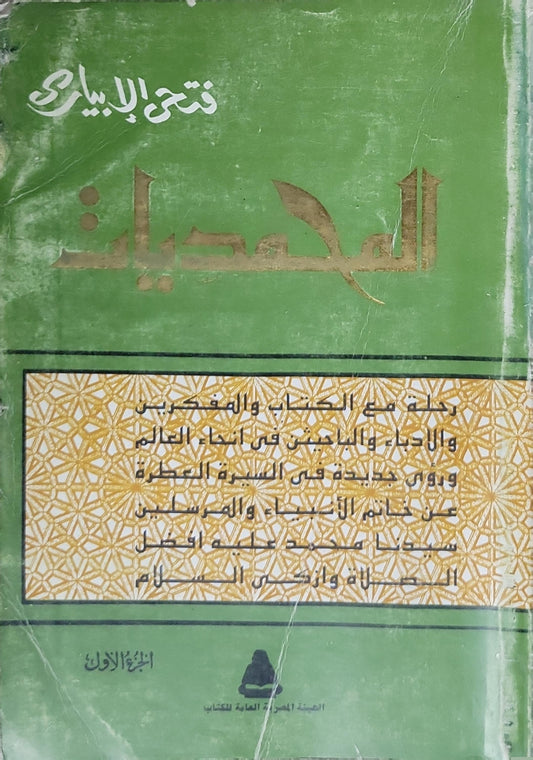 فتحى الإبيارى
المحمديات
رحلة مع الكتاب والمفكرين
والادباء والباحيثن فى انحاء العالم
ورؤى جديدة فى السيرة العطرة
عن خاتم الأنبياء والمرسلين
سيدنا محمد عليه افضل
الصلاة وازكى السلام
الجزء الأول
الهيئة المصرية العامة للكتاب